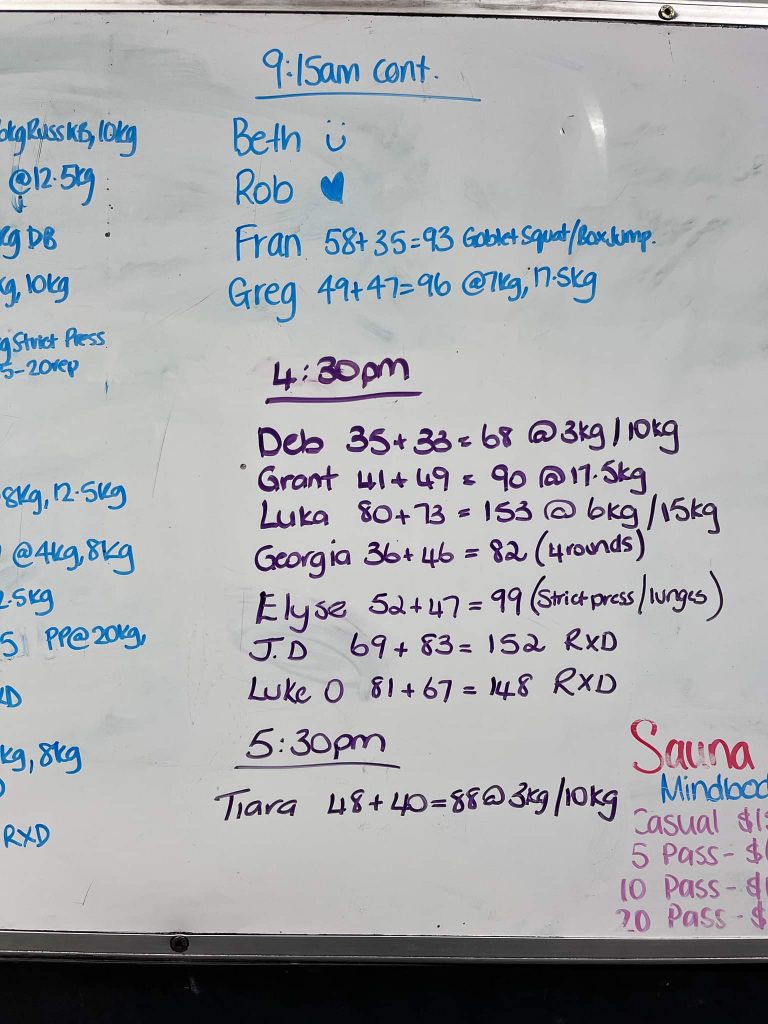 9:15am cont.
Beth ü
Rob ♥
Fran 58+35=93 Goblet Squat/Box Jump.
Greg 49+47=96 @7kg, 17.5kg
4:30pm
Deb 35+33=68 @3kg/10kg
Grant 41+49=90 @17.5kg
Luka 80+73=153 @6kg/15kg
Georgia 36+46=82 (4 rounds)
Elyse 52+47=99 (Strict press/lunges)
J.D 69+83=152 RXD
Luke O 81+67=148 RXD
5:30pm
Tiara 48+40=88 @3kg/10kg
kg Russ KB, 10kg
@12.5kg
kg DB
kg, 10kg
Strict Press
5-20rep
8kg, 12.5kg
@4kg, 8kg
2.5kg
5 PP@20kg,
kg, 8kg
RXD
Sauna
Mindbod
Casual $1
5 Pass - $
10 Pass - $
20 Pass - $